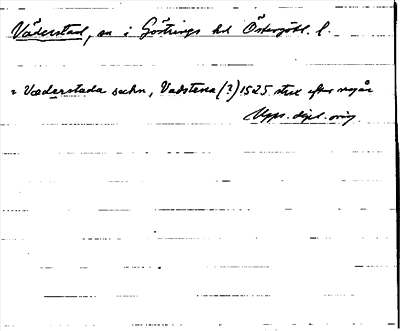 Väderstad, sn i Göstrings hd Östergötl. l.
i Væderstada sochn, Vadstena (?) 1525 strax efter nyår
Upps. dipl. orig.